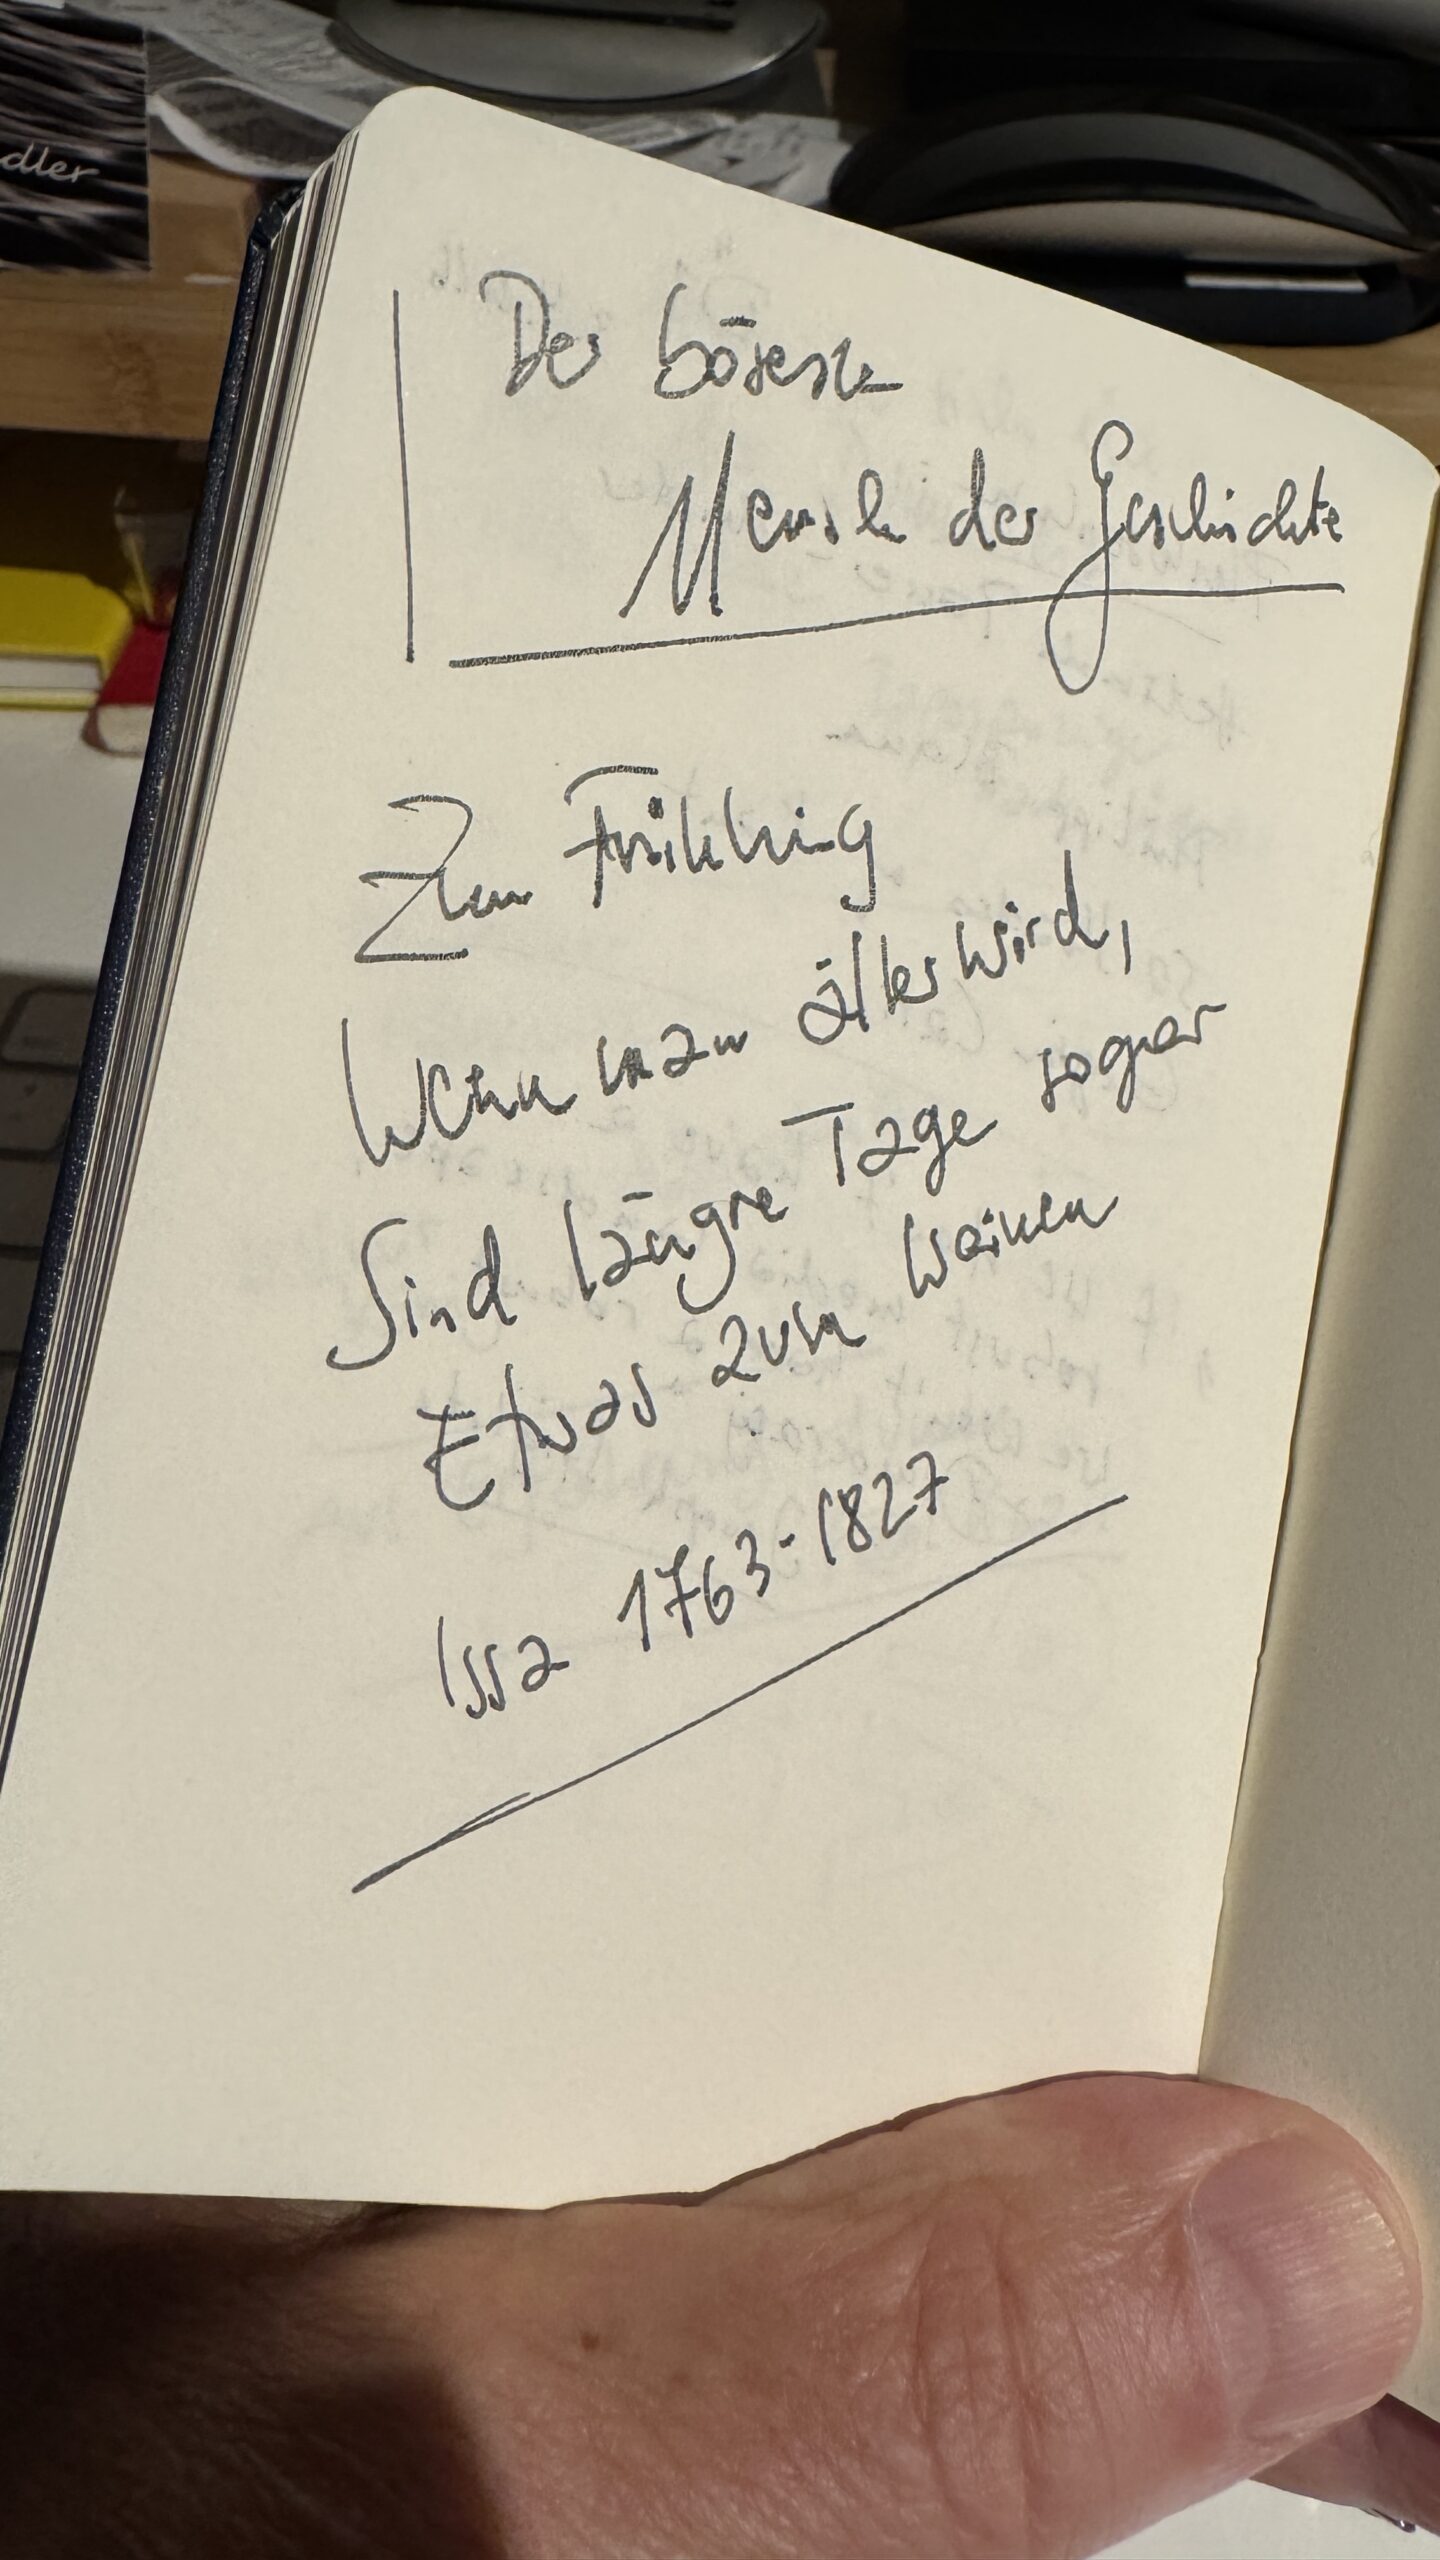 dler
Der böseste
Mensch der Geschichte
Zum Frühling
Wenn man älter wird,
Sind längre Tage sogar
Etwas zum Weinen
Issa 1763-1827